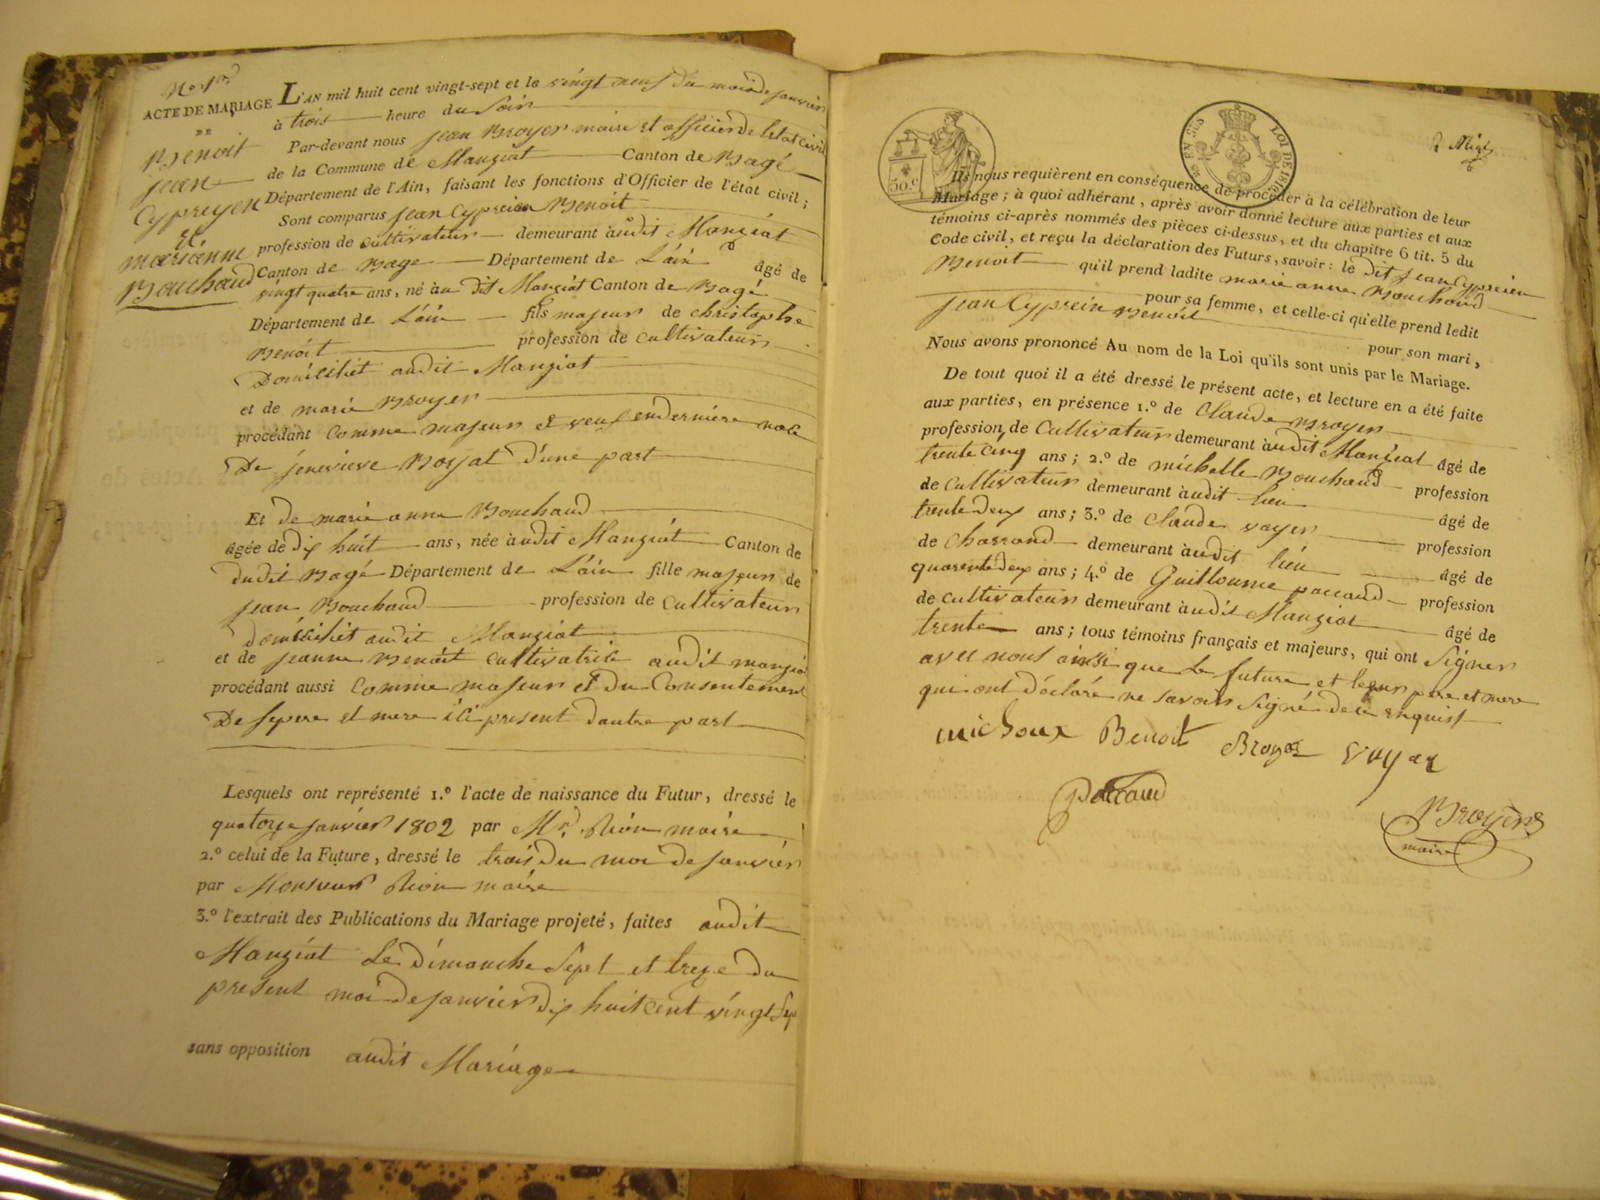 N.o 1er
ACTE DE MARIAGE
DE
Benoit
jean
Cypreyen
et
mariánne
Bouchaud
L'AN mil huit cent vingt-sept et le vingt neuf du mois de janvier
à trois heure du Soir
Par-devant nous jean Broyer maire et officier de letat civil
de la Commune de Manziat Canton de Bagé
Département de l'Ain, faisant les fonctions d'Officier de l'état civil;
Sont comparus jean Cypreien Benoit
profession de cultivateur demeurant audit Manziat
Canton de Bage Département de L'ain âgé de
vingt quatre ans, né au dit Manziat Canton de Bagé
Département de L'ain fils majeur de christophe
Benoit profession de cultivateur
Domiciliet audit Manziat
et de marie Broyer
procédant Comme majeur et veuf en derniere noce
De jenevieve Boyat d'une part
Et de marie anne Bouchaud
âgée de dix huit ans, née audit Manziat Canton de
dudit Bagé Département de L'ain fille majeur de
jean Bouchaud profession de Cultivateur
domicilièt audit Manziat
et de jeanne Benoit cultivatrice audit manziat
procédant aussi Comme majeur et du Consentement
De sepere et mere ici present dautre part
Lesquels ont représenté 1.º l'acte de naissance du Futur, dressé le
quatorze janvier 1802 par Mr. Rion maire
2.º celui de la Future, dressé le trois du moi de janvier
par Monsieur Rion maire
3.º l'extrait des Publications du Mariage projeté, faites audit
Manziat Le dimanche sept et treize du
present moi de janvier dix huit cent vingt Sep
sans opposition audit Mariage
30.c
LOI DE 1816
Ils nous requièrent en conséquence de procéder à la célébration de leur
Mariage; à quoi adhérant, après avoir donné lecture aux parties et aux
témoins ci-après nommés des pièces ci-dessus, et du chapitre 6 tit. 5 du
Code civil, et reçu la déclaration des Futurs, savoir: le dit jean Cypreien
Benoit qu'il prend ladite marie anne Bouchaud
pour sa femme, et celle-ci qu'elle prend ledit
jean Cyprein Benoit pour son mari,
Nous avons prononcé Au nom de la Loi qu'ils sont unis par le Mariage.
De tout quoi il a été dressé le présent acte, et lecture en a été faite
aux parties, en présence 1.º de Claude Broyer
profession de Cultivateur demeurant audit Manziat âgé de
trente cinq ans; 2.º de michelle Bouchaud profession
de Cultivateur demeurant audit lieu âgé de
trente deux ans; 3.º de Claude voyer profession
de Charrand demeurant audit lieu âgé de
quarente deux ans; 4.º de Guilloume paccaud profession
de cultivateur demeurant audit Manziat âgé de
trente ans; tous témoins français et majeurs, qui ont Signer
avec nous ainsi que le future et leeur pere et mere
qui ont déclaré ne savoir Signé de ce enquist
michoux Benoit Broyer voyer
Paccaud
Broyer
maire